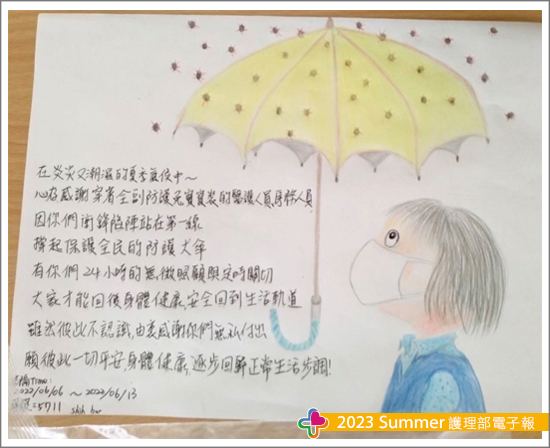 在炎炎又潮濕的夏季裏使中～
心存感謝穿著全副防護兔寶寶裝的醫護人員
因你們衝鋒陷陣站在第一線
撐起保護全民的防護大傘
有你們24小時的無微照顧與定時關切
大家才能回復身體健康、安全回到生活軌道
雖然彼此不認識,由衷感謝你們無私付出
願彼此一切平安,身體健康,逐步回歸正常生活步調!
Time:
2022/06/06 ～ 2022/06/13
5711
2023 Summer 護理部電子報